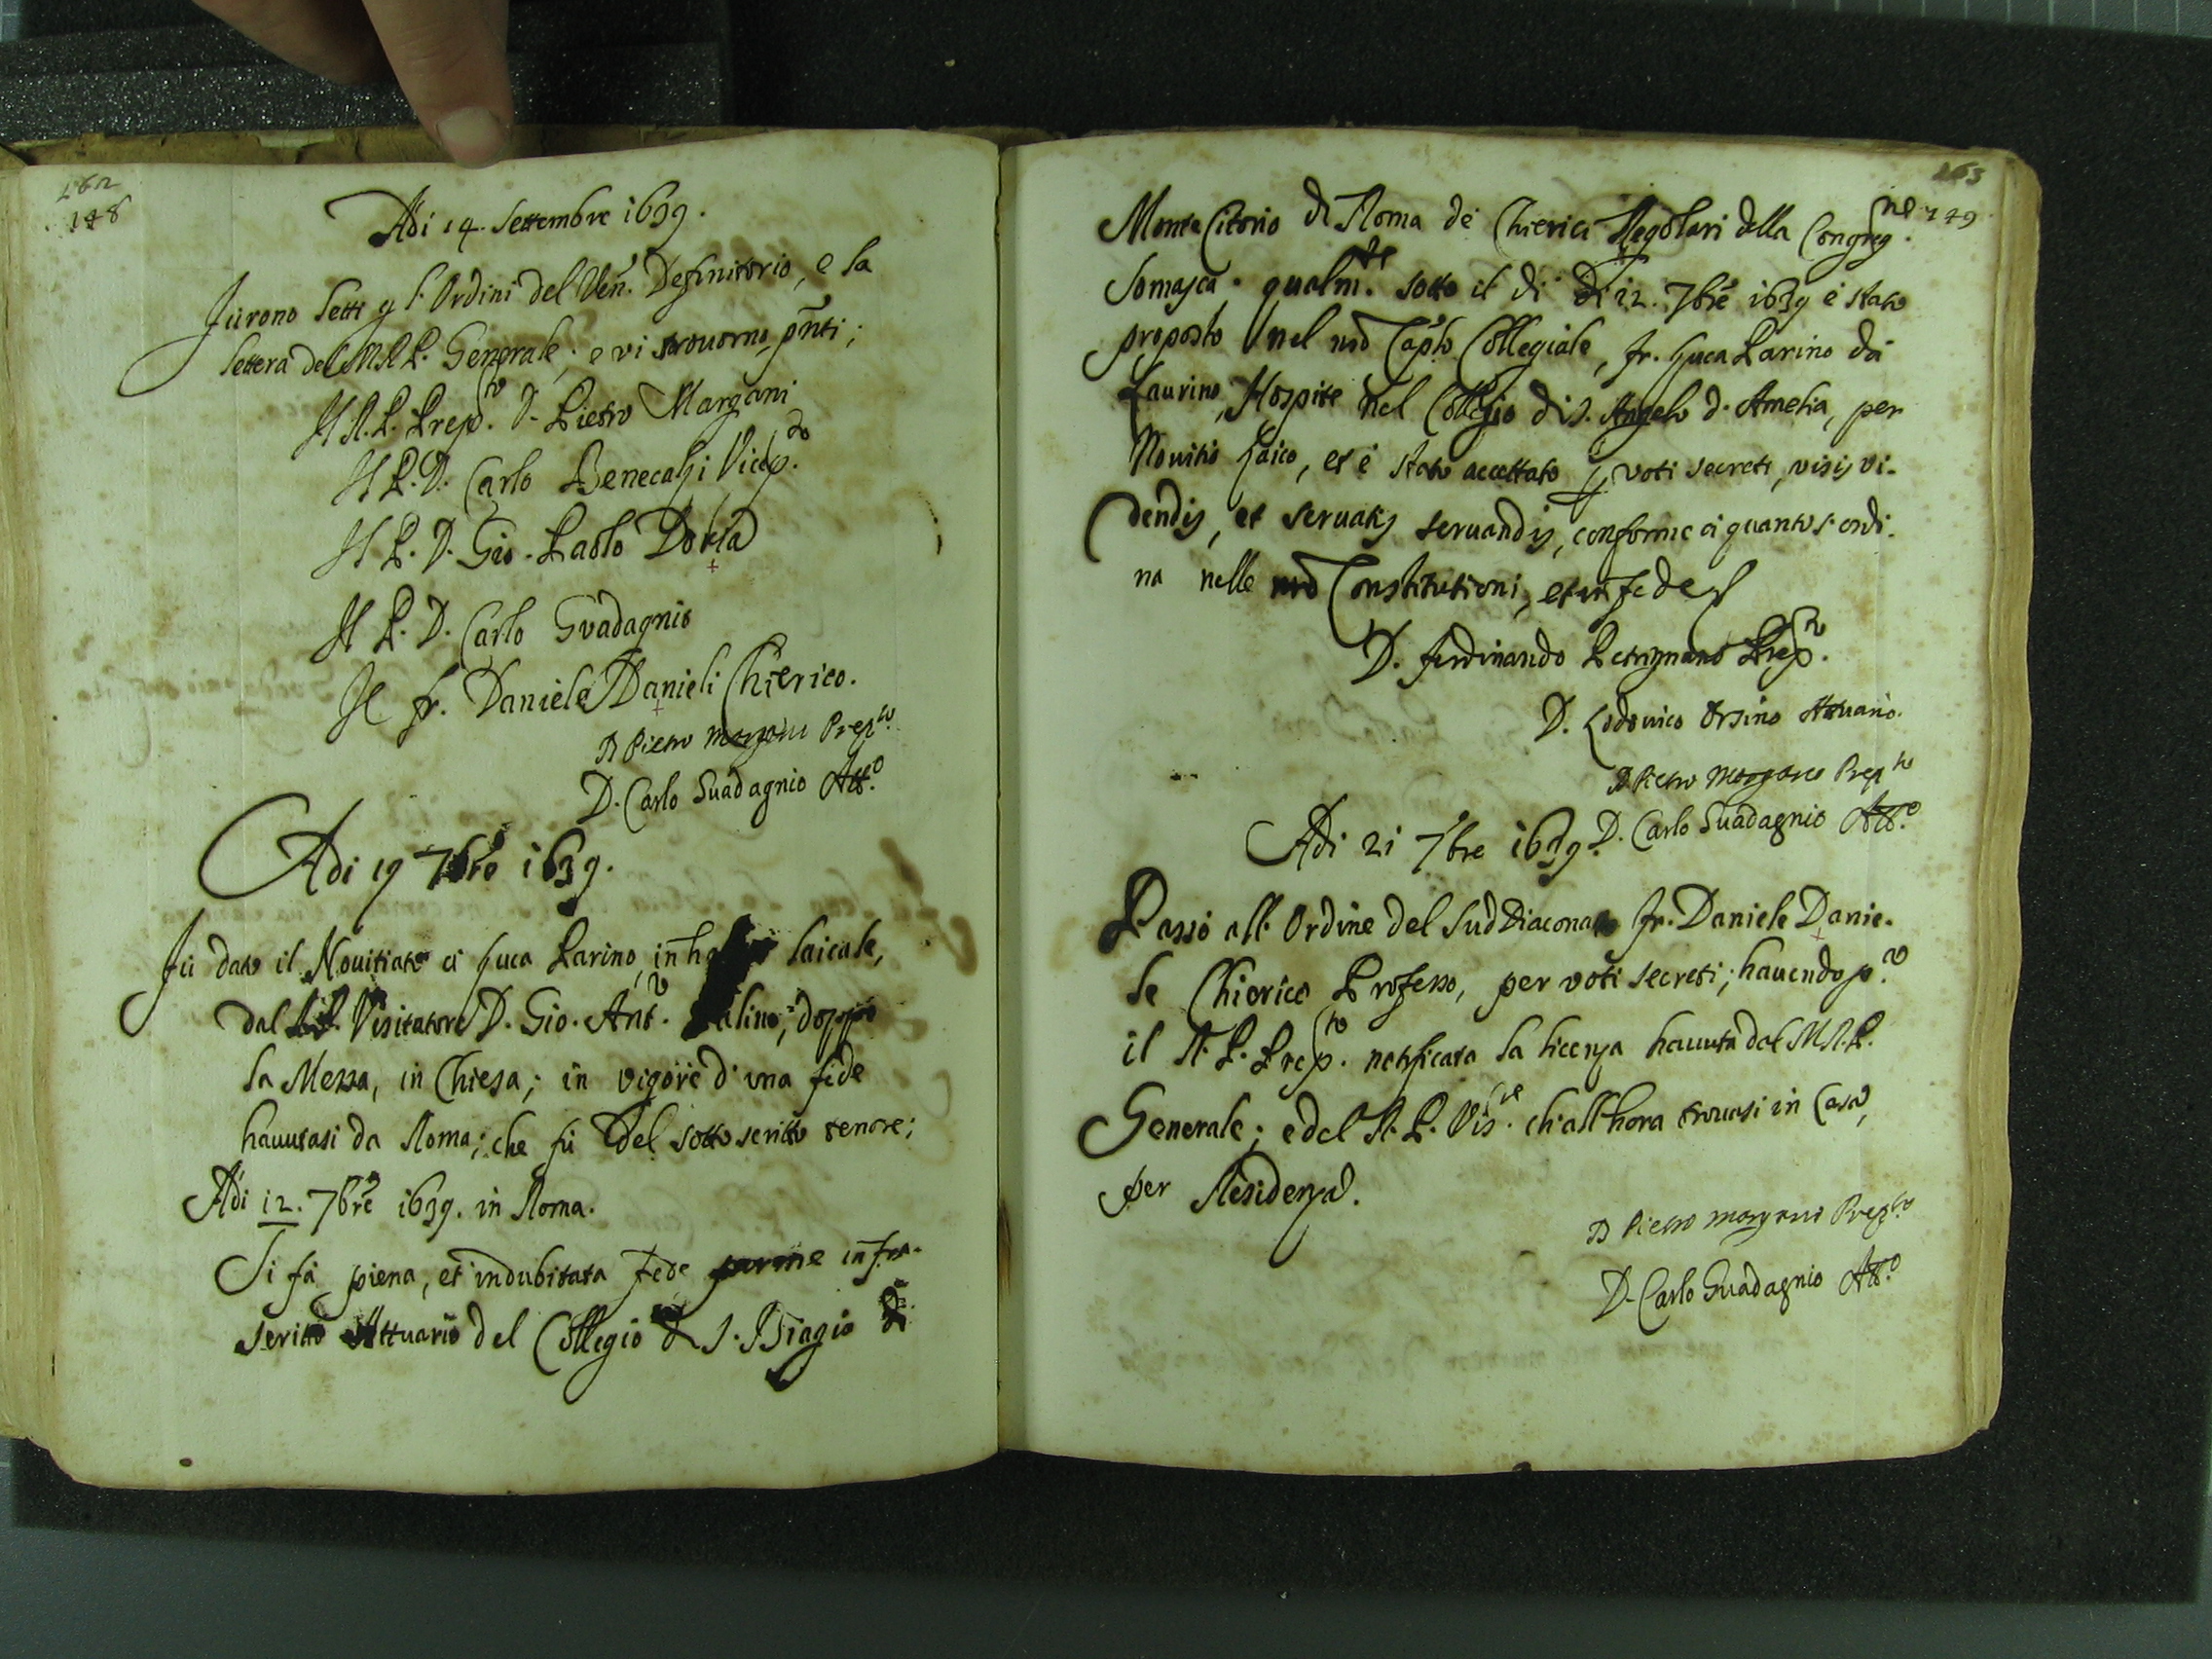 162
148
Adi 14. Settembre 1639.
Furono letti gl'Ordini del Ven. Definitorio, e la
lettera del M.R.P. Generale; e vi trovorno pnti;
Il R.P. Prep.to D. Pietro Margani
Il P. D. Carlo Benecasi Vicep.to
Il P. D. Gio. Paolo Doria
Il P. D. Carlo Guadagnio
Il fr. Daniele Danieli Chierico.
D Pietro Margani Prep.to
D. Carlo Guadagnio Att.o
Adi 19 7bre 1639.
Fù dato il Novitiato à Luca Parino, in laicale,
dal Visitatore D. Gio. Ant.o doppo
la Messa, in Chiesa; in vigore d'una fede
havutasi da Roma; che fù del sotto scritto tenore;
Adi 12. 7bre 1639. in Roma.
Si fà piena, et indubitata fede per me infra-
scritto Attuario del Collegio di S. Biagio di
163
149
Monte Citorio di Roma de Chierici Regolari della Congreg.ne
Somasca. qualm.te sotto il di di 12. 7bre 1639 è stato
proposto nel nro Capto Collegiale, fr. Luca Parino da
Laurino, Hospite nel Collegio di S. Angelo d'Amelia, per
Novitio laico, et è stato accettato p voti secreti, visis vi-
dendis, et servatis servandis, conforme à quanto s'ordi-
na nelle nre Constitutioni, et in fede
D. Ferdinando Petrignano Prep.to
D. Lodovico Orsino Attuario.
D Pietro Margano Prep.to
D. Carlo Guadagnio Att.o
Adi 21 7bre 1639.
Passò all'Ordine del SudDiaconato fr. Daniele Danie-
le Chierico Professo, per voti secreti; havendo p.o
il R. P. Prep.to notificata la licenza havuta dal M.R.P.
Generale; e del R. P. Vis.re ch'all'hora trovasi in Casa,
per Residenza.
D Pietro Margano Prep.to
D. Carlo Guadagnio Att.o